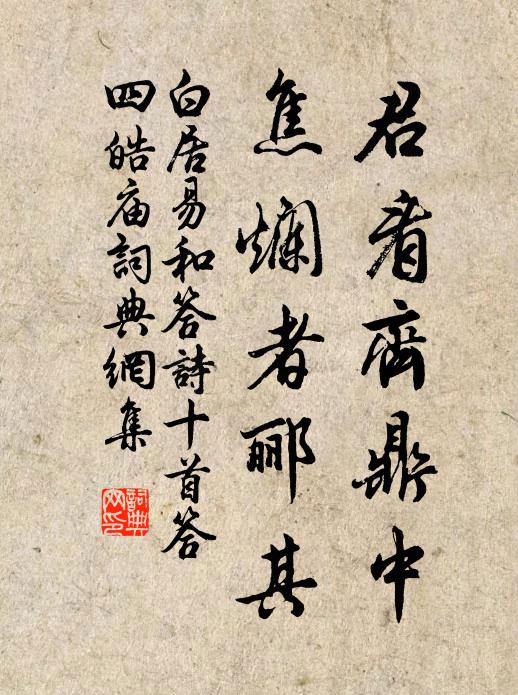 君看齊鼎中
焦爛者酈其
白居易和答詩十首答
四皓庙詞典網集
詞典网印